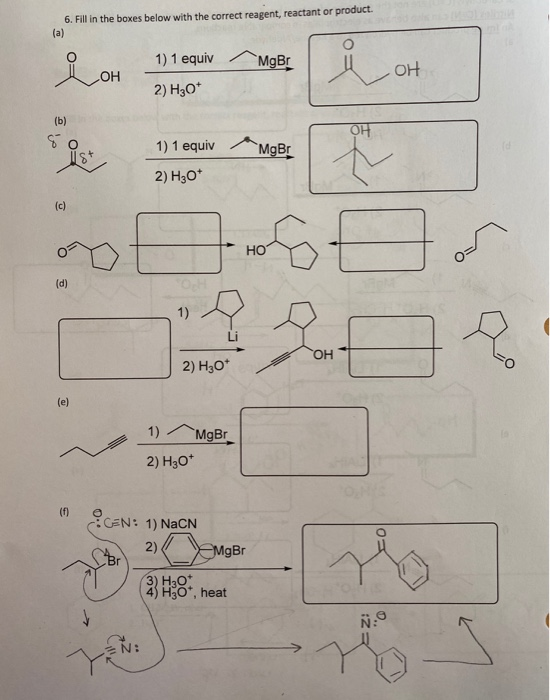 6. Fill in the boxes below with the correct reagent, reactant or product.
(a)
O
OH
1) 1 equiv MgBr
2) H3O+
O
OH
(b)
δ- O
δ+
1) 1 equiv MgBr
2) H3O+
OH
(c)
O
HO
O
(d)
1)
Li
2) H3O+
OH
O
(e)
1) MgBr
2) H3O+
(f)
⊖
:C≡N: 1) NaCN
Br
2) MgBr
3) H3O+
4) H3O+, heat
O
N:
N:⊖